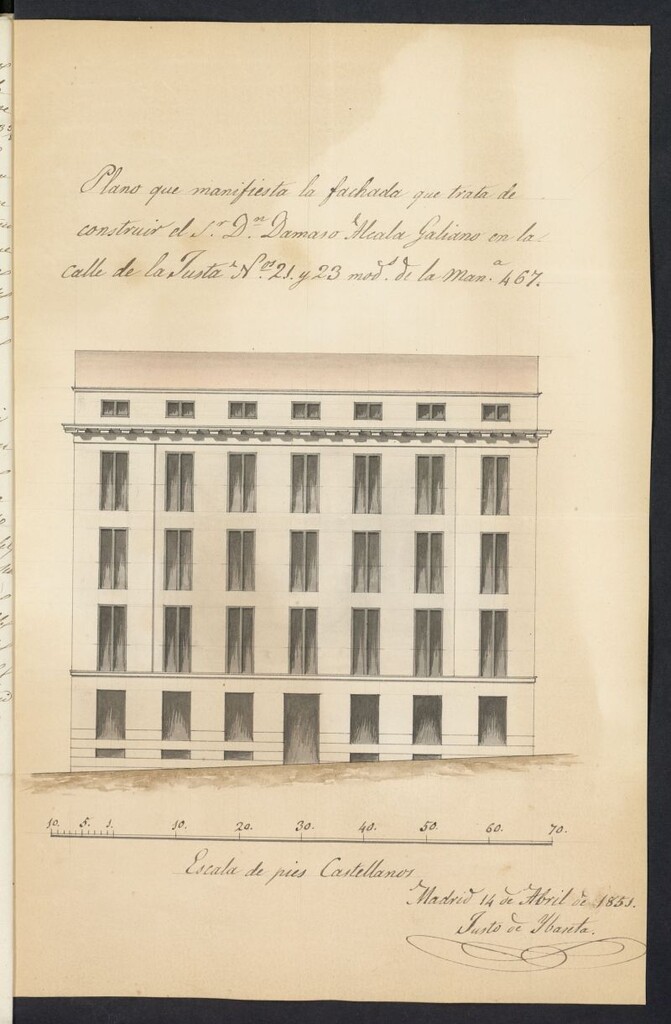 Plano que manifiesta la fachada que trata de
construir el S.r D.n Damaso Alcala Galiano en la
calle de la Justa N.os 21. y 23 mod.s de la Man.a 467.
10. 5. 1. 10. 20. 30. 40. 50. 60. 70.
Escala de pies Castellanos
Madrid 14 de Abril de 1851.
Justo de Ybaseta.